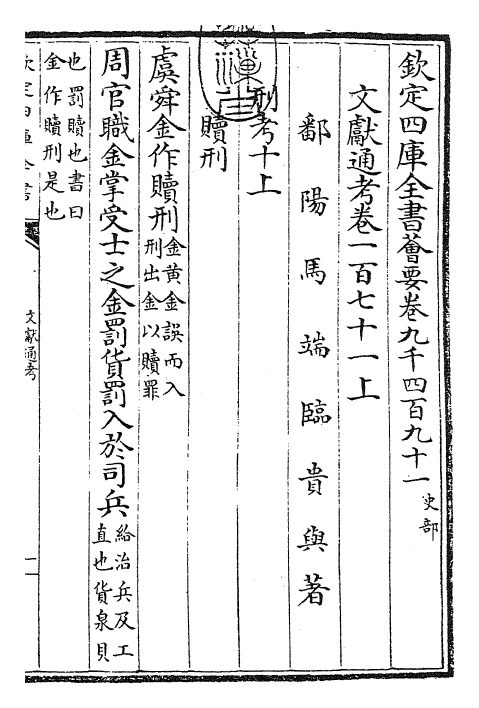 欽定四庫全書薈要卷九千四百九十一史部
文獻通考卷一百七十一上
鄱陽馬端臨貴與著
刑考十上
贖刑
虞舜金作贖刑金黃金誤而入
刑出金以贖罪
周官職金掌受士之金罰貨罰入於司兵給治兵及工
直也貨泉貝
也罰贖也書曰
金作贖刑是也
文獻通考
一